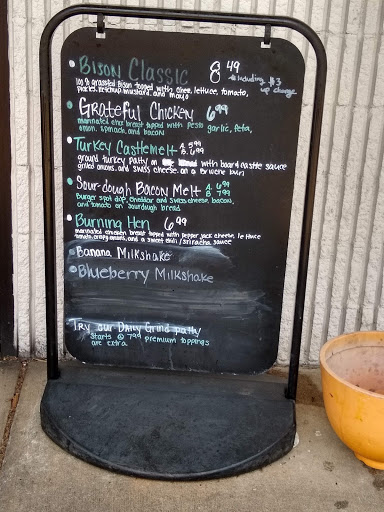 Bison Classic 8 49
*Including $3 up charge
100% grassfed Bison topped with chez, lettuce, tomato,
pickles, ketchup, mustard, and mayo
Grateful Chicken 6 99
marinated chix breast topped with pesto garlic, feta,
onion, spinach, and bacon
Turkey Castlemelt A. 5.99
B. 6.99
ground turkey patty on with board castle sauce
grilled onions, and swiss cheese on a Brioche bun
Sour-dough Bacon Melt A. 6.99
B. 7.99
Burger spot dip, cheddar and swiss cheese, bacon,
and tomato on sourdough bread
Burning Hen 6.99
marinated chicken breast topped with pepper jack cheese, lettuce
tomato, crispy onions, and a sweet chili / sriracha sauce
Banana Milkshake
Blueberry Milkshake
Try our Daily Grind patty
Starts @ 7.99 premium toppings
are extra